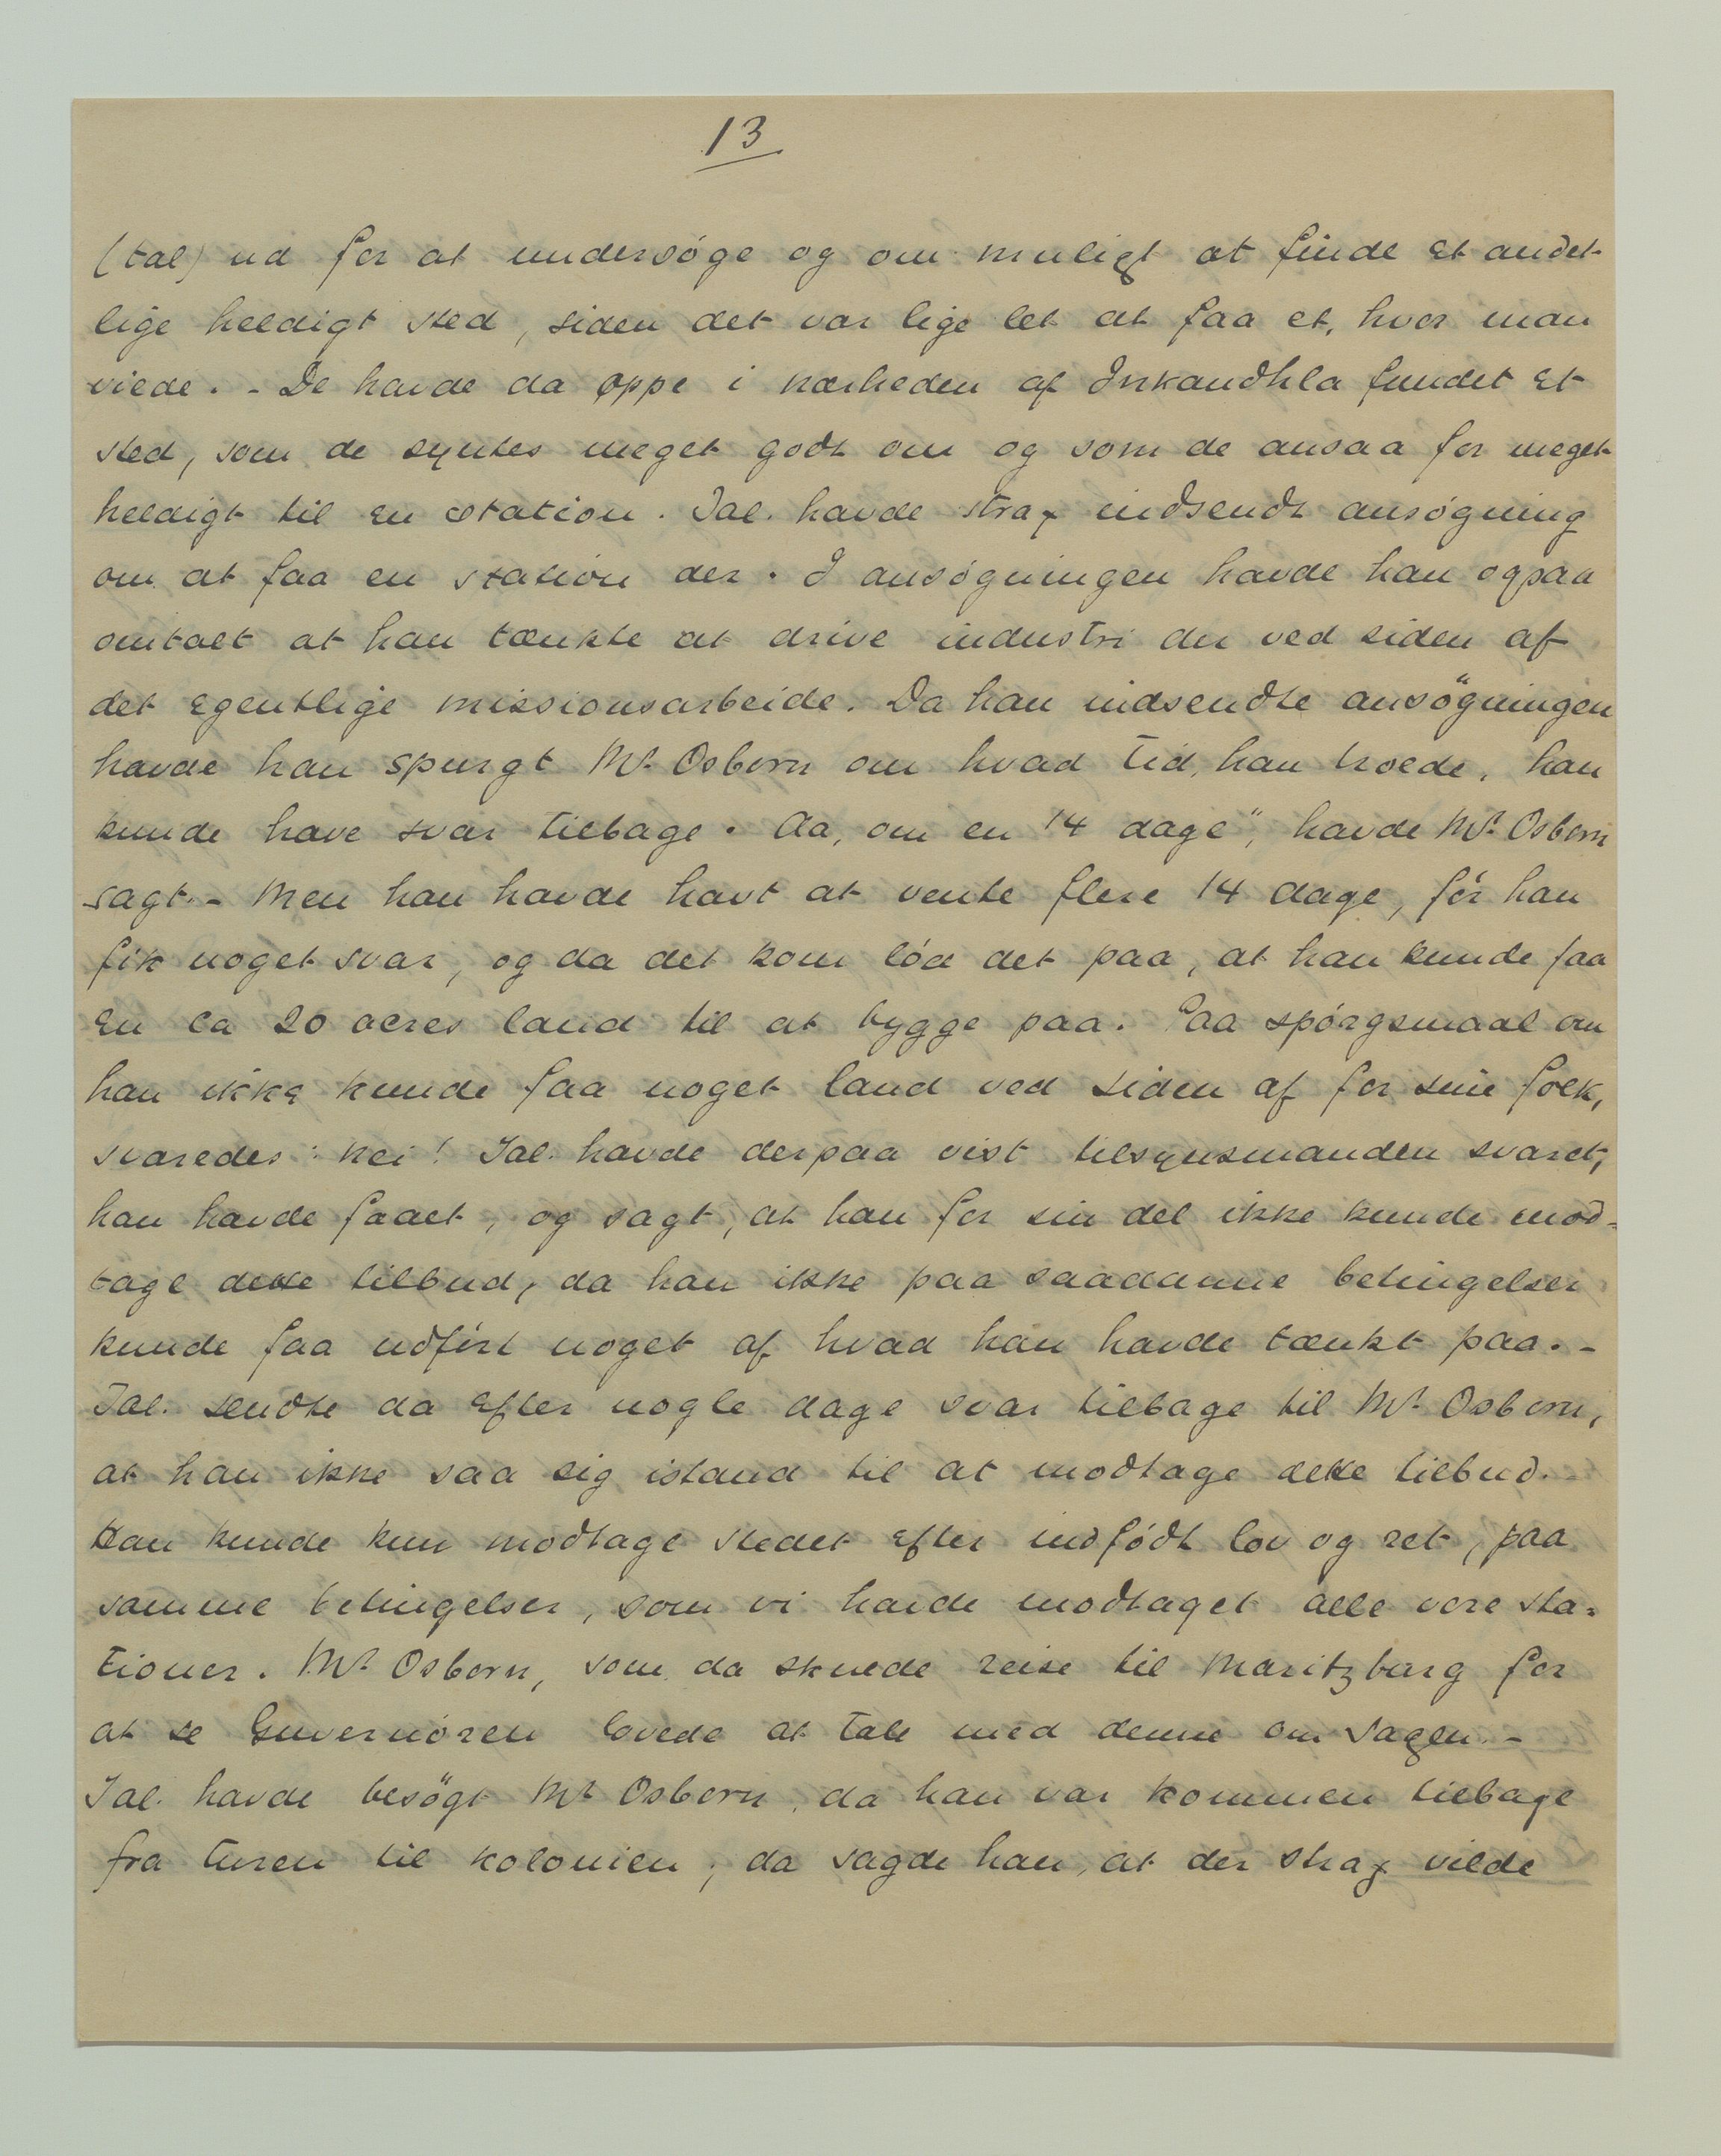 13
(tal) ud for at undersøge og om muligt at finde et andet
lige heldigt sted, siden det var lige let at faa et, hvor man
vilde. - De havde da oppe i nærheden af Inkandhla fundet et
sted, som de syntes meget godt om og som de ansaa for meget
heldigt til en station. Tal. havde strax indsendt ansøgning
om at faa en station der. I ansøgningen havde han ogsaa
omtalt at han tænkte at drive industri der ved siden af
det egentlige missionsarbeide. Da han indsendte ansøgningen
havde han spurgt Mr. Osborn om hvad tid, han troede, han
kunde have svar tilbage. Aa, om en 14 dage", havde Mr. Osborn
sagt. - Men han havde havt at vente flere 14 dage, før han
fik noget svar, og da det kom lød det paa, at han kunde faa
en ca 20 acres land til at bygge paa. Paa spørgsmaal om
han ikke kunde faa noget land ved siden af for sine folk,
svaredes: nei! Tal. havde derpaa vist tilsynsmanden svaret,
han havde faaet, og sagt, at han for sin del ikke kunde mod=
tage dette tilbud, da han ikke paa saadanne betingelser
kunde faa udført noget af hvad han havde tænkt paa. -
Tal. sendte da efter nogle dage svar tilbage til Mr. Osborn,
at han ikke saa sig istand til at modtage dette tilbud.
Han kunde kun modtage stedet efter indfødt lov og ret, paa
samme betingelser, som vi havde modtaget alle vore sta=
tioner. Mr. Osborn, som da skulde reise til Maritzburg for
at se Guvernøren lovede at tale med denne om sagen. -
Tal. havde besøgt Mr. Osborn, da han var kommen tilbage
fra turen til kolonien; da sagde han, at der strax vilde